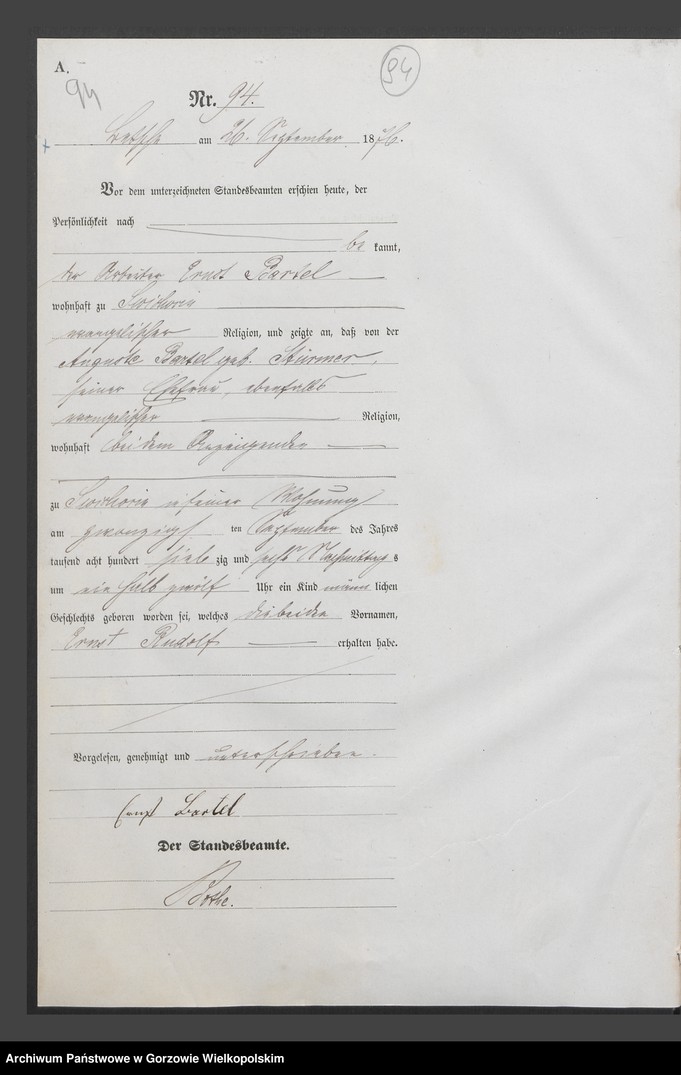 A.
94
94
Nr. 94.
am 26. September 1876.
Vor dem unterzeichneten Standesbeamten erschien heute, der
Persönlichkeit nach
be kannt,
der Arbeiter Ernst Bartel
wohnhaft zu
evangelischer Religion, und zeigte an, daß von der
Auguste Bartel geb. Stürmer,
seiner Ehefrau, ebenfalls
evangelischer Religion,
wohnhaft bei dem Anzeigenden
zu in seiner Wohnung
am zwanzigs ten September des Jahres
tausend acht hundert sieb zig und sechs Vormittags
um ein halb zwölf Uhr ein Kind männ lichen
Geschlechts geboren worden sei, welches die beiden Vornamen,
Ernst Rudolf erhalten habe.
Vorgelesen, genehmigt und unterschrieben.
Ernst Bartel
Der Standesbeamte.
Archiwum Państwowe w Gorzowie Wielkopolskim